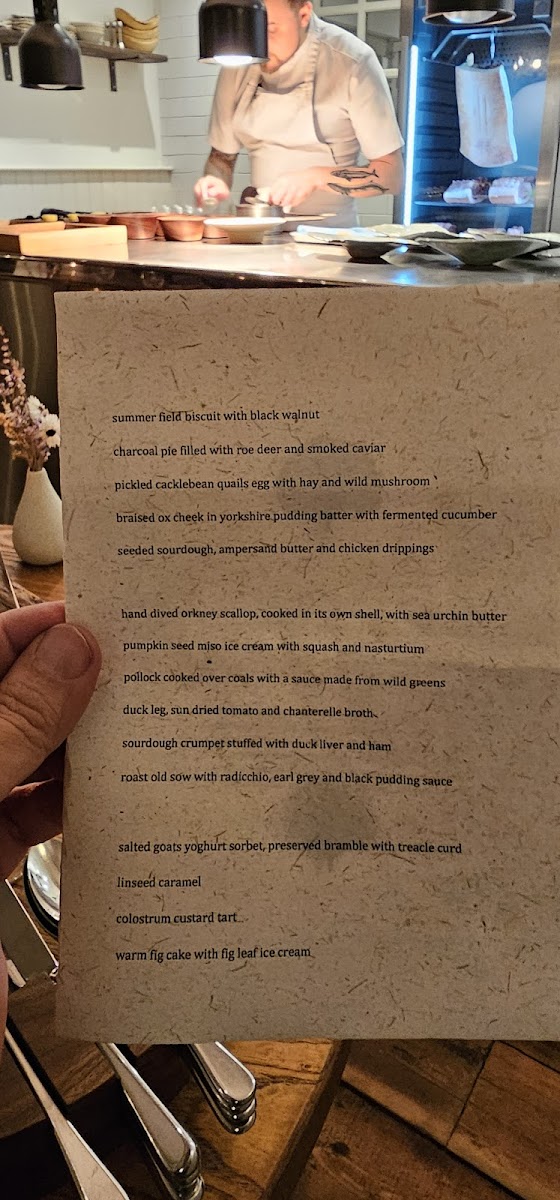 summer field biscuit with black walnut
charcoal pie filled with roe deer and smoked caviar
pickled cacklebean quails egg with hay and wild mushroom
braised ox cheek in yorkshire pudding batter with fermented cucumber
seeded sourdough, ampersand butter and chicken drippings
-
hand dived orkney scallop, cooked in its own shell, with sea urchin butter
pumpkin seed miso ice cream with squash and nasturtium
pollock cooked over coals with a sauce made from wild greens
duck leg, sun dried tomato and chanterelle broth
sourdough crumpet stuffed with duck liver and ham
roast old sow with radicchio, earl grey and black pudding sauce
-
salted goats yoghurt sorbet, preserved bramble with treacle curd
linseed caramel
colostrum custard tart
warm fig cake with fig leaf ice cream